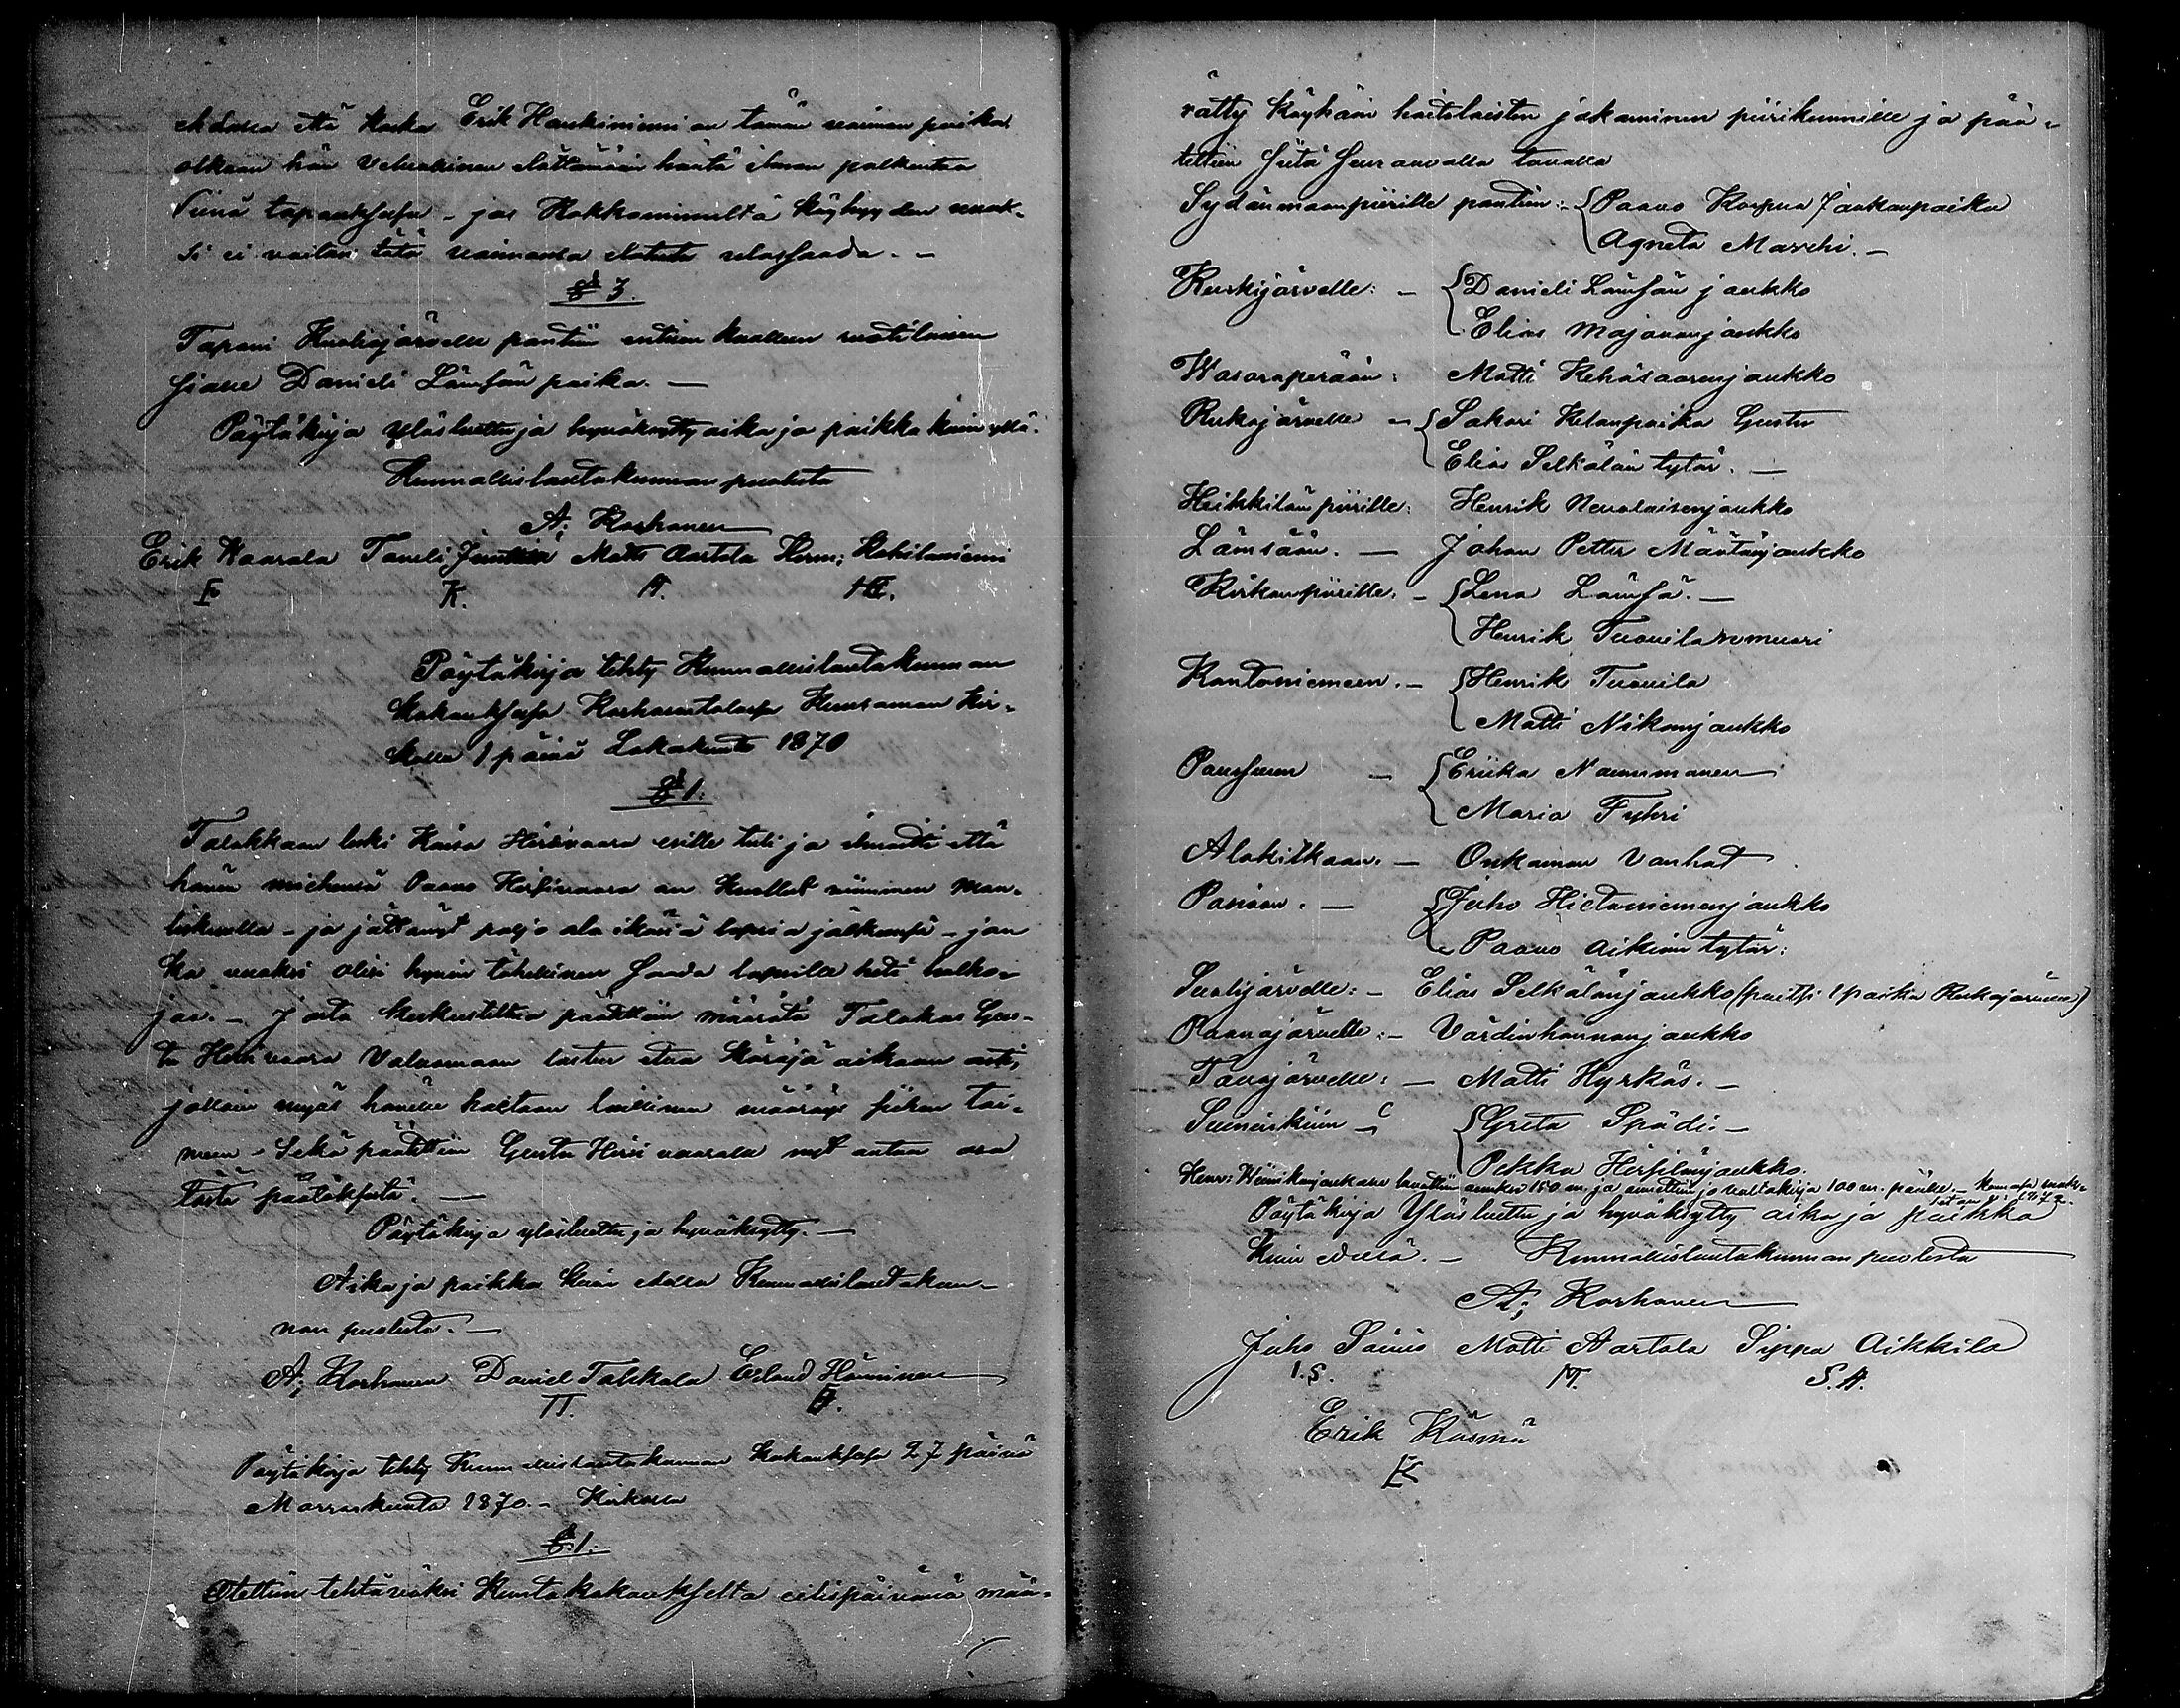 että koska Erik Haukiniemi on tämän vaiman poika
olkoon hän Velvollinen elättämään häntä ilman palkkaa
Siinä tapauksessa - jos Rokkoniemeltä köyhyyden vuok-
si ei voitasi tätä vaimonsa elatusta ulossaada. -
§ 3.
Tapani Kuoliojärvelle pantiin entisen kuolleen ruotilaisen
siaan Danieli Lämsän poika. -
Pöytäkirja ylösluettu ja hyväksytty aika ja paikka kuin yllä.
Kunnallislautakunnan puolesta
A; Korhonen
Erik Waarala Taneli Juntti Matti Aartola Herm; Kohilaniemi
E K. M. HK.
Pöytäkirja tehty Kunnallislautakunnan
Kokouksessa Korhosentalossa Kuusamon Kir-
kolla 1 päivä Lokakuuta 1870
§ 1.
Talokkaan leski Kaisa Hirsivaara esille tuli ja ilmoitti että
hänen miehensä Paavo Hirsivaara on Kuollut viimmen maa-
liskuulla - ja jättänyt paljo ala ikäisiä lapsia jälkeensä - jon
ka vuoksi olisi hyvin tähellinen saada lapsille heti holho-
jaa. - Josta Keskusteltua päätettiin määrätä Talokas Gus-
ta Hirsivaara Valvomaan lasten etua Käräjä aikaan asti,
jolloin myös hänelle haetaan laillinen määräys siihen toi-
meen - Sekä päätettiin Gusta Hirsivaaralle nyt antaa osa
tästä päätöksestä. -
Pöytäkirja ylösluettu ja hyväksytty. -
Aika ja paikka kuin edellä Kunnallislautakun-
nan puolesta. -
A; Korhonen Daniel Takkala Erland Hänninen
DT. EH.
Pöytäkirja tehty Kunnallislautakunnan Kokouksessa 27 päivä
Marraskuuta 1870. - Kirkolla
§ 1.
Otettiin tehtäväksi Kuntakokoukselta eilispäivänä mää-
rätty Köyhäin hoitolaisten jakaminen piirikunnille ja pää-
tettiin siitä seuraavalla tavalla
Sydänmaanpiirille pantiin: - Paavo Karpua Jaakonpoika
Agneta Marschi. -
Kurkijärvelle: - Danieli Lämsän joukko
Elias Majavanjoukko
Wasaraperään: Matti Kehäsaarenjoukko
Rukajärvelle - Sakari Kelanpoika Gusta
Elias Selkälän tytär. -
Heikkilän piirille: Henrik Nevalaisenjoukko
Lämsään. - Johan Petter Määtänjoukko
Kirkonpiirille. - Lena Lämsä. -
Henrik Tuovila vanmuori
Kantoniemeen. - Henrik Tuovila
Matti Nikonjoukko
Poussuun - Eriika Nammanen
Maria Fyhri
Alakitkaan. - Onkamon Vanhat
Posioon. - Juho Hietaniemenjoukko
Paavo Aikion tytär:
Suolijärvelle: - Elias Selkälänjoukko (paitsi 1 poika Rukajärvelle)
Paanajärvelle: - Värdinhannanjoukko
Tavajärvelle: - Matti Hyrkäs. -
Suininkiin - Greta Spädi: -
Pekka Hirsilänjoukko.
150 m. ja 100 m.
Pöytäkirja Ylösluettu ja hyväksytty aika ja paikka
kuin edellä. - Kunnallislautakunnan puolesta
A; Korhonen
Juho Säiniö Matti Aartola Sippa Aikkila
I. S. M. S. A.
Erik Käsmä
EK